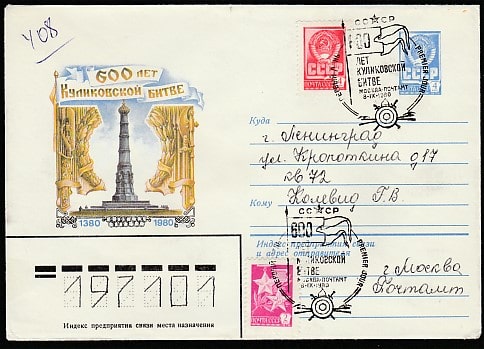 У08
600 ЛЕТ
КУЛИКОВСКОЙ БИТВЕ
1380 1980
СССР
ПОЧТА
СССР
СССР
600
ЛЕТ
КУЛИКОВСКОЙ
БИТВЕ
МОСКВА-ПОЧТАМТ
8-IX-1980
PREMIER JOUR
Куда
г. Ленинград
ул. Кропоткина д 17
кв 72
Кому
Колевид Г.В.
Индекс предприятия связи
и адрес отправителя
СССР
600
КУЛИКОВСКОЙ
БИТВЕ
МОСКВА-ПОЧТАМТ
8-IX-1980
PREMIER JOUR
г. Москва
Почтамт
197101
Индекс предприятия связи места назначения